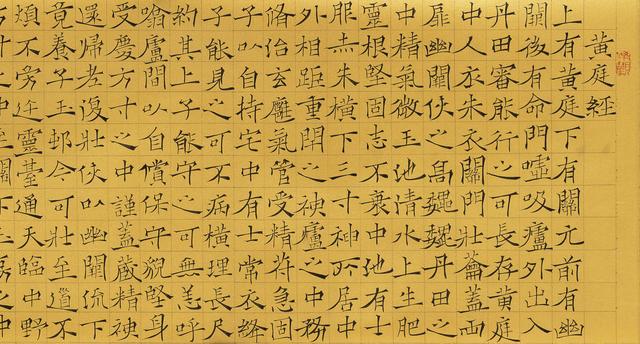 黄庭經
上有黄庭下有關元前有幽
闕後有命門噓吸廬外出入
丹田審能行之可長存黄庭
中人衣朱衣關門壯蘥蓋兩
扉幽闕俠之高巍巍丹田之
中精氣微玉池清水上生肥
靈根堅固志不衰中池有士
服赤朱橫下三寸神所居中
外相距重閉之神廬之中務
脩治玄麁氣管受精苻急固
子以自持宅中有士常衣絳
子能見之可不病橫理長尺
約其上子能守之可無恙呼
噏廬間以自償保守貌堅身
受慶方寸之中謹蓋藏精神
還歸老復壯俠以幽闕流下
竟養子玉樹令可壯至道不
煩不旁迕靈臺通天臨中野